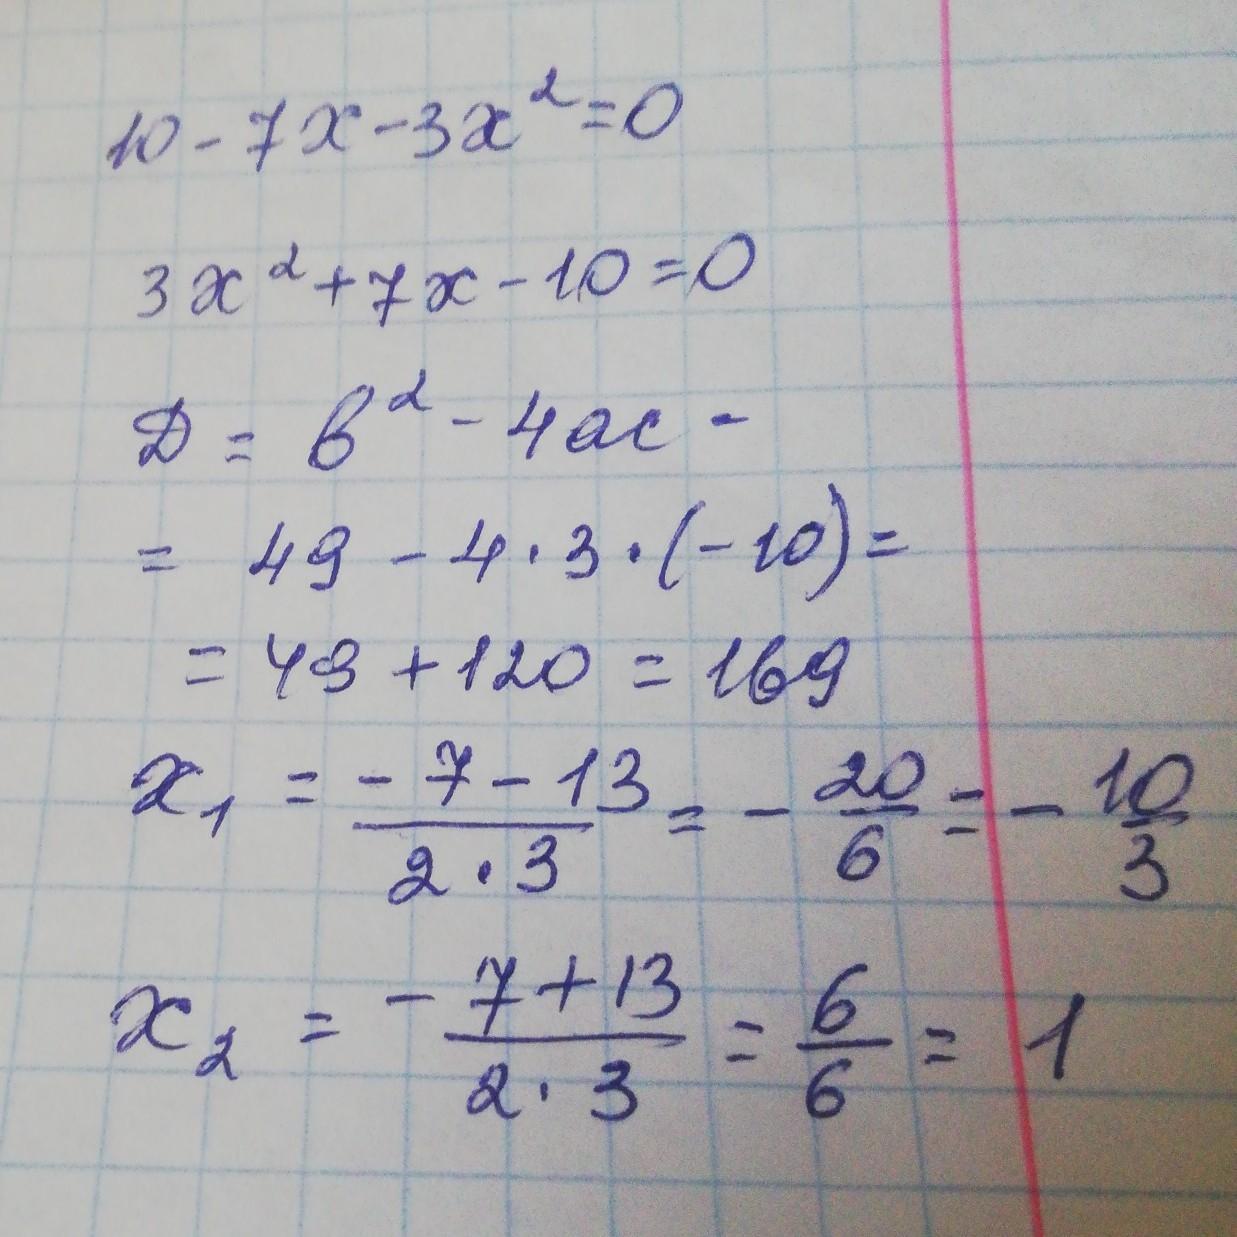 10 - 7x - 3x² = 0
3x² + 7x - 10 = 0
Д = в² - 4ас -
= 49 - 4 · 3 · (-10) =
= 49 + 120 = 169
x₁ = (-7 - 13)/(2 · 3) = - 20/6 = - 10/3
x₂ = (-7 + 13)/(2 · 3) = 6/6 = 1